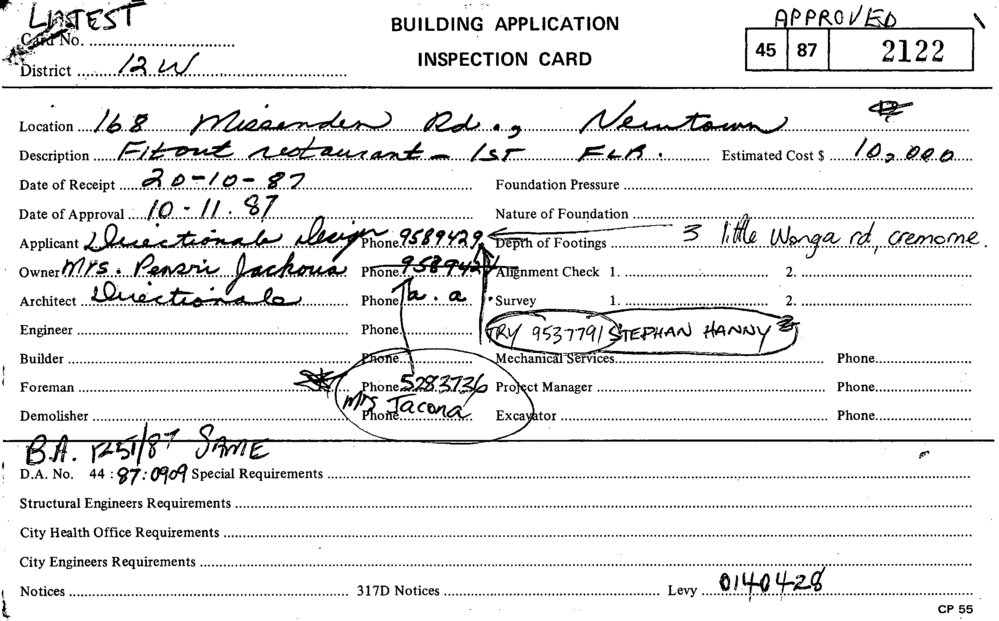 LATEST
BUILDING APPLICATION
APPROVED
Card No.
INSPECTION CARD
45 87 2122
District 12W
Location 168 Missenden Rd., Newtown
Description Fitout restaurant - 1ST FLR. Estimated Cost $ 10,000
Date of Receipt 20-10-87 Foundation Pressure
Date of Approval 10-11.87 Nature of Foundation
Applicant Directionale Design Phone 9589429 Depth of Footings 3 little Wonga rd, cremorne.
Owner Mrs. Pensri Phone 9589429 Alignment Check 1. 2.
Architect Directionale Phone a.a. Survey 1. 2.
Engineer Phone TRY 9537791 STEPHAN HANNY
Builder Phone Mechanical Services Phone
Foreman Phone 5283736 Project Manager Phone
Mrs Tacona
Demolisher Phone Excavator Phone
B.A. 1251/87 SAME
D.A. No. 44 : 87 : 0909 Special Requirements
Structural Engineers Requirements
City Health Office Requirements
City Engineers Requirements
Notices 317D Notices Levy 0140428
CP 55